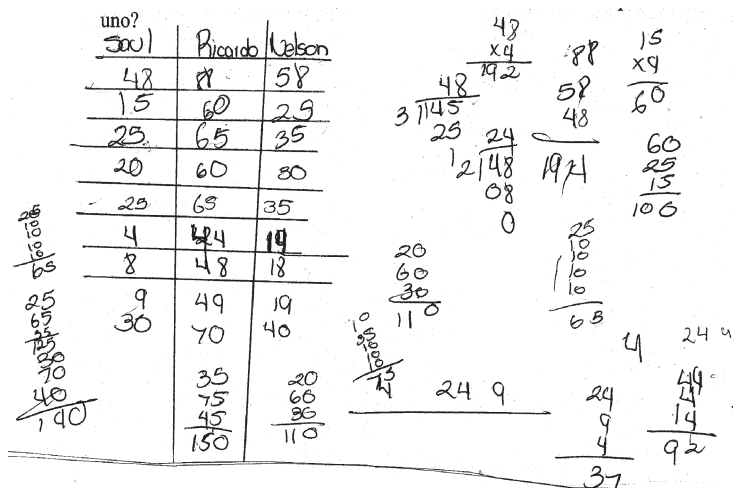 uno?
Saul Ricardo Nelson
48 88 58
15 60 25
25 65 35
20 60 30
25 65 35
4 44 14
8 48 18
9 49 19
30 70 40
35
75
45
150
20
60
30
110
25
10
10
10
10
65
25
65
35
125
30
70
40
140
48
x4
192
48
3 145
25
24
2 148
08
0
88
58
48
194
15
x4
60
60
25
15
100
20
60
30
110
25
10
10
10
10
65
4 24 9
24
9
4
37
4
24 4
14
92